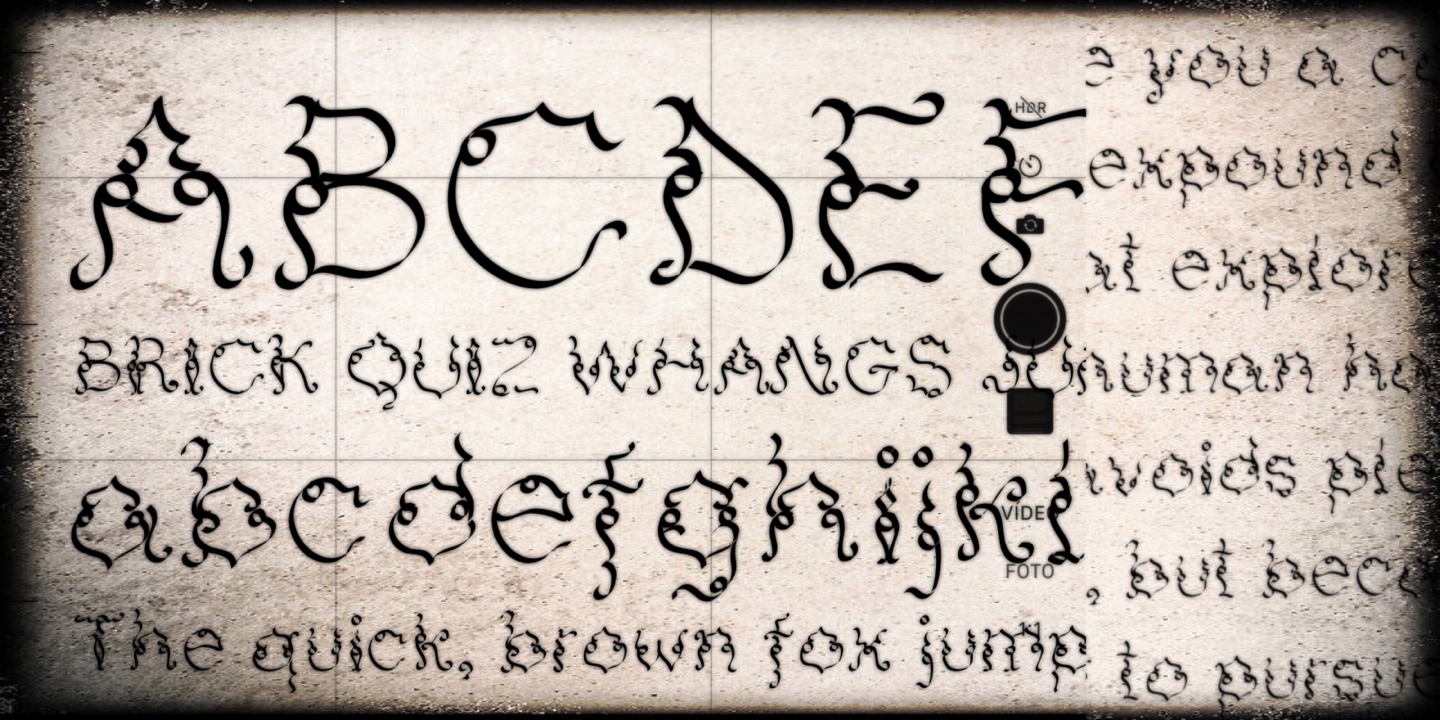 ABCDEF
BRICK QUIZ WHANGS JU
abcdefghijkl
The quick, brown fox jump
HDR
VIDE
FOTO
e you a c
expound
at explor
human ha
voids ple
, but bec
to pursue